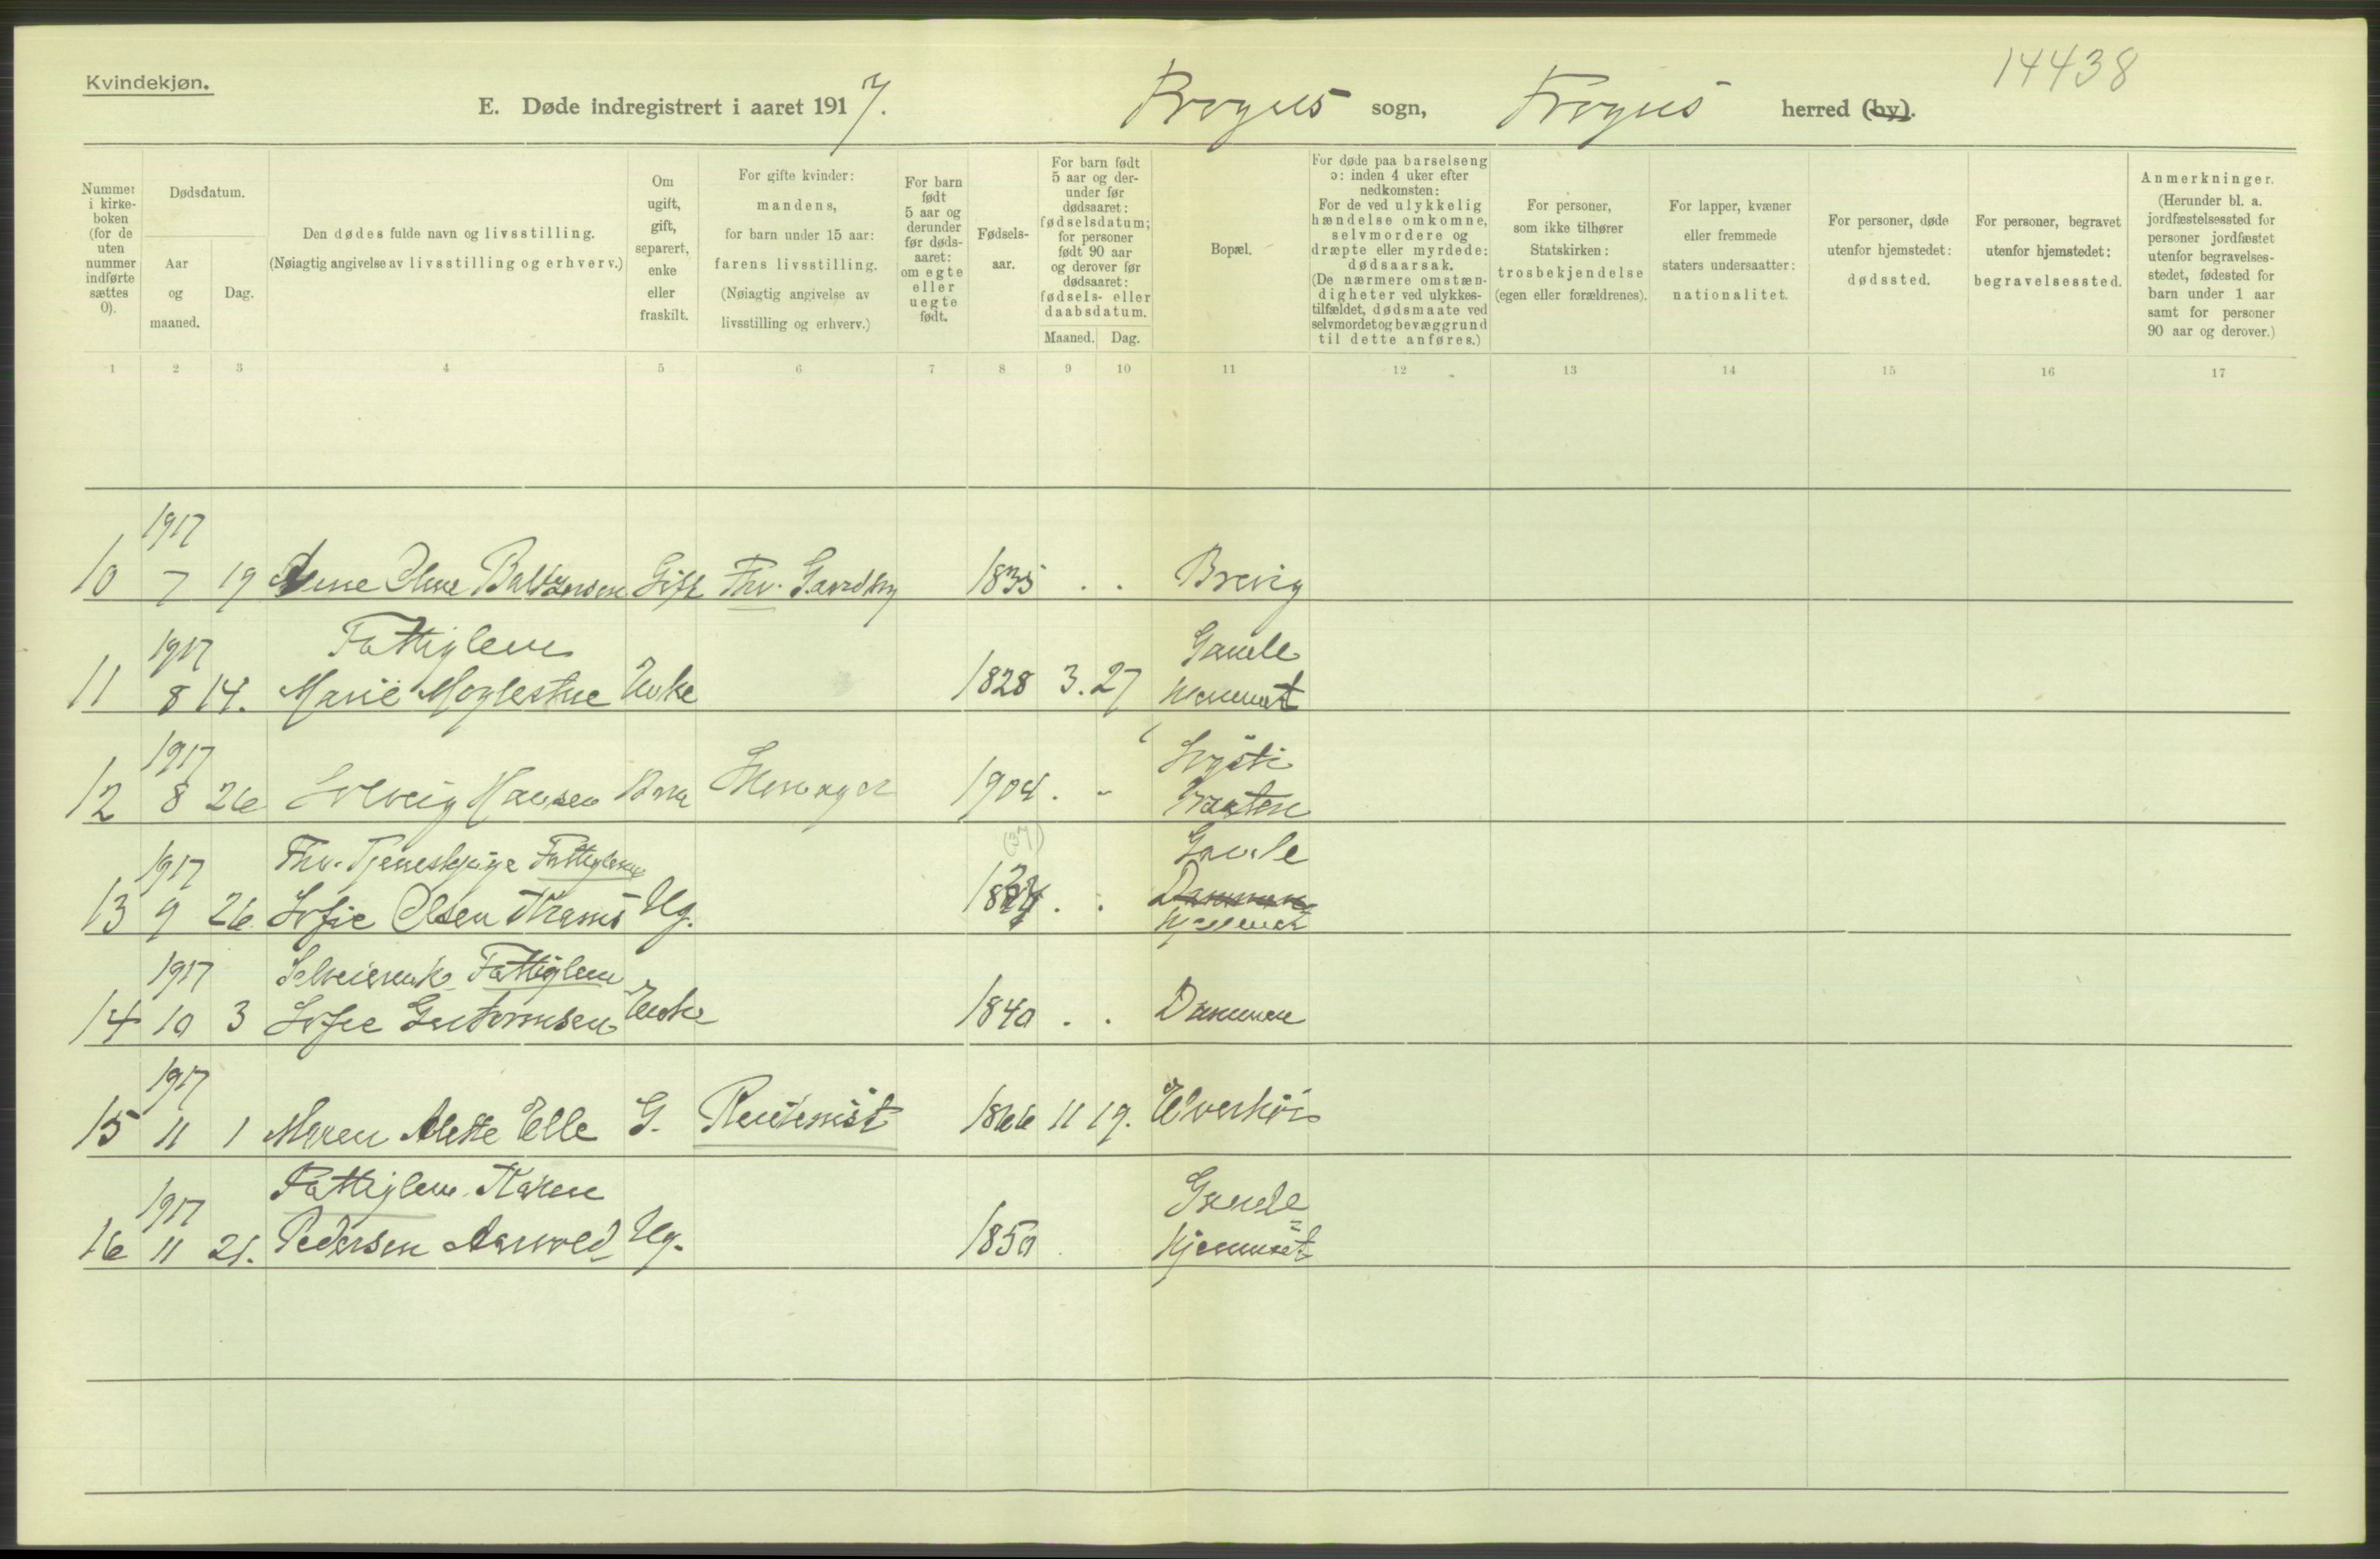 Kvindekjøn.
14438
E. Døde indregistrert i aaret 1917. Frogns sogn, Frogns herred (by).
Nummer i kirkeboken (for de uten nummer indførte sættes 0).
Dødsdatum.
Aar og maaned.
Dag.
Den dødes fulde navn og livsstilling.
(Nøiagtig angivelse av livsstilling og erhverv.)
Om ugift, gift, separert, enke eller fraskilt.
For gifte kvinder: mandens, for barn under 15 aar: farens livsstilling.
(Nøiagtig angivelse av livsstilling og erhverv.)
For barn født 5 aar og derunder før dødsaaret: om egte eller uegte født.
Fødselsaar.
For barn født 5 aar og derunder før dødsaaret: fødselsdatum; for personer født 90 aar og derover før dødsaaret: fødsels- eller daabsdatum.
Maaned. Dag.
Bopæl.
For døde paa barselseng ɔ: inden 4 uker efter nedkomsten:
For de ved ulykkelig hændelse omkomne, selvmordere og dræpte eller myrdede: dødsaarsak.
(De nærmere omstændigheter ved ulykkestilfældet, dødsmaate ved selvmordet og bevæggrund til dette anføres.)
For personer, som ikke tilhører Statskirken: trosbekjendelse (egen eller forældrenes).
For lapper, kvæner eller fremmede staters undersaatter: nationalitet.
For personer, døde utenfor hjemstedet: dødssted.
For personer, begravet utenfor hjemstedet: begravelsessted.
Anmerkninger.
(Herunder bl. a. jordfæstelsessted for personer jordfæstet utenfor begravelsesstedet, fødested for barn under 1 aar samt for personer 90 aar og derover.)
1 2 3 4 5 6 7 8 9 10 11 12 13 14 15 16 17
1917
10 7 19 Anne Oline Baltzersen Gift Fhv. Gaardbr 1835 . . Brevig
1917 Fattiglem Gamle
11 8 14. Marie Moglestue Enke 1828 3. 27 hjemmet
1917
12 8 26 Solveig Hansen Barn 1904 . -
(37)
1917 Fhv. Tjenestepige Fattiglem Gamle
13 9 26 Sofie Olsen Ug. . . Dammen hjemmet
1917 Selveierenke Fattiglem
14 10 3 Sofie Guttormsen Enke 1840 . . Dammen
1917
15 11 1 Maren Alette Elle G. Rentenist 1866 11 19. Elverhøi
1917 Fattiglem Karen Gamle=
16 11 21. Pedersen Ug. 1850 hjemmet